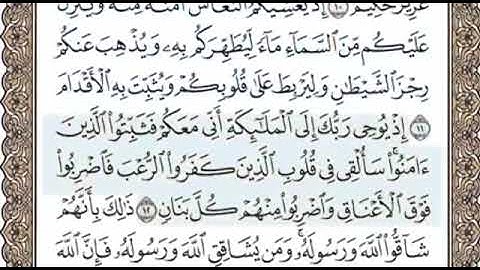 عَزِيزٌ حَكِيمٌ ١٠ إِذْ يُغَشِّيكُمُ ٱلنُّعَاسَ أَمَنَةً مِّنْهُ وَيُنَزِّلُ
عَلَيْكُم مِّنَ ٱلسَّمَآءِ مَآءً لِّيُطَهِّرَكُم بِهِۦ وَيُذْهِبَ عَنكُمْ
رِجْزَ ٱلشَّيْطَٰنِ وَلِيَرْبِطَ عَلَىٰ قُلُوبِكُمْ وَيُثَبِّتَ بِهِ ٱلْأَقْدَامَ
١١ إِذْ يُوحِى رَبُّكَ إِلَى ٱلْمَلَٰٓئِكَةِ أَنِّى مَعَكُمْ فَثَبِّتُوا۟ ٱلَّذِينَ
ءَامَنُوا۟ۚ سَأُلْقِى فِى قُلُوبِ ٱلَّذِينَ كَفَرُوا۟ ٱلرُّعْبَ فَٱضْرِبُوا۟
فَوْقَ ٱلْأَعْنَاقِ وَٱضْرِبُوا۟ مِنْهُمْ كُلَّ بَنَانٍ ١٢ ذَٰلِكَ بِأَنَّهُمْ
شَآقُّوا۟ ٱللَّهَ وَرَسُولَهُۥۚ وَمَن يُشَاقِقِ ٱللَّهَ وَرَسُولَهُۥ فَإِنَّ ٱللَّهَ